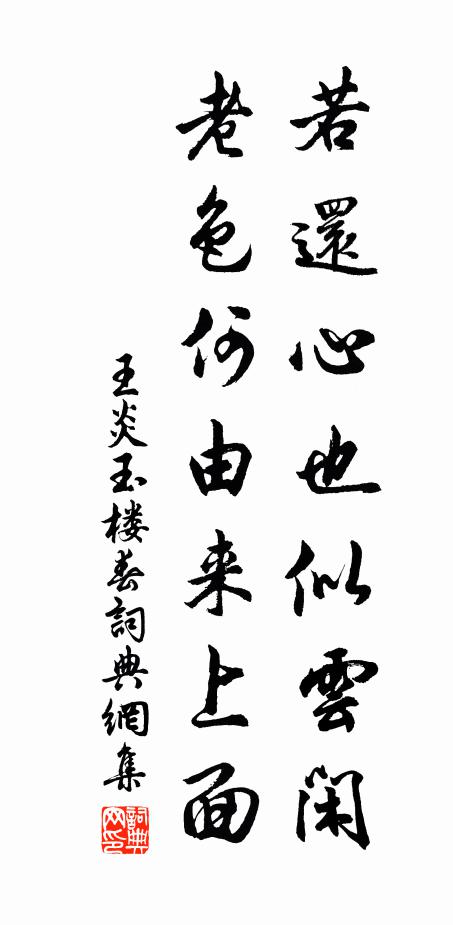 若還心也似雲閑
老色何由来上面
王炎玉楼春詞典網集
詞典网印